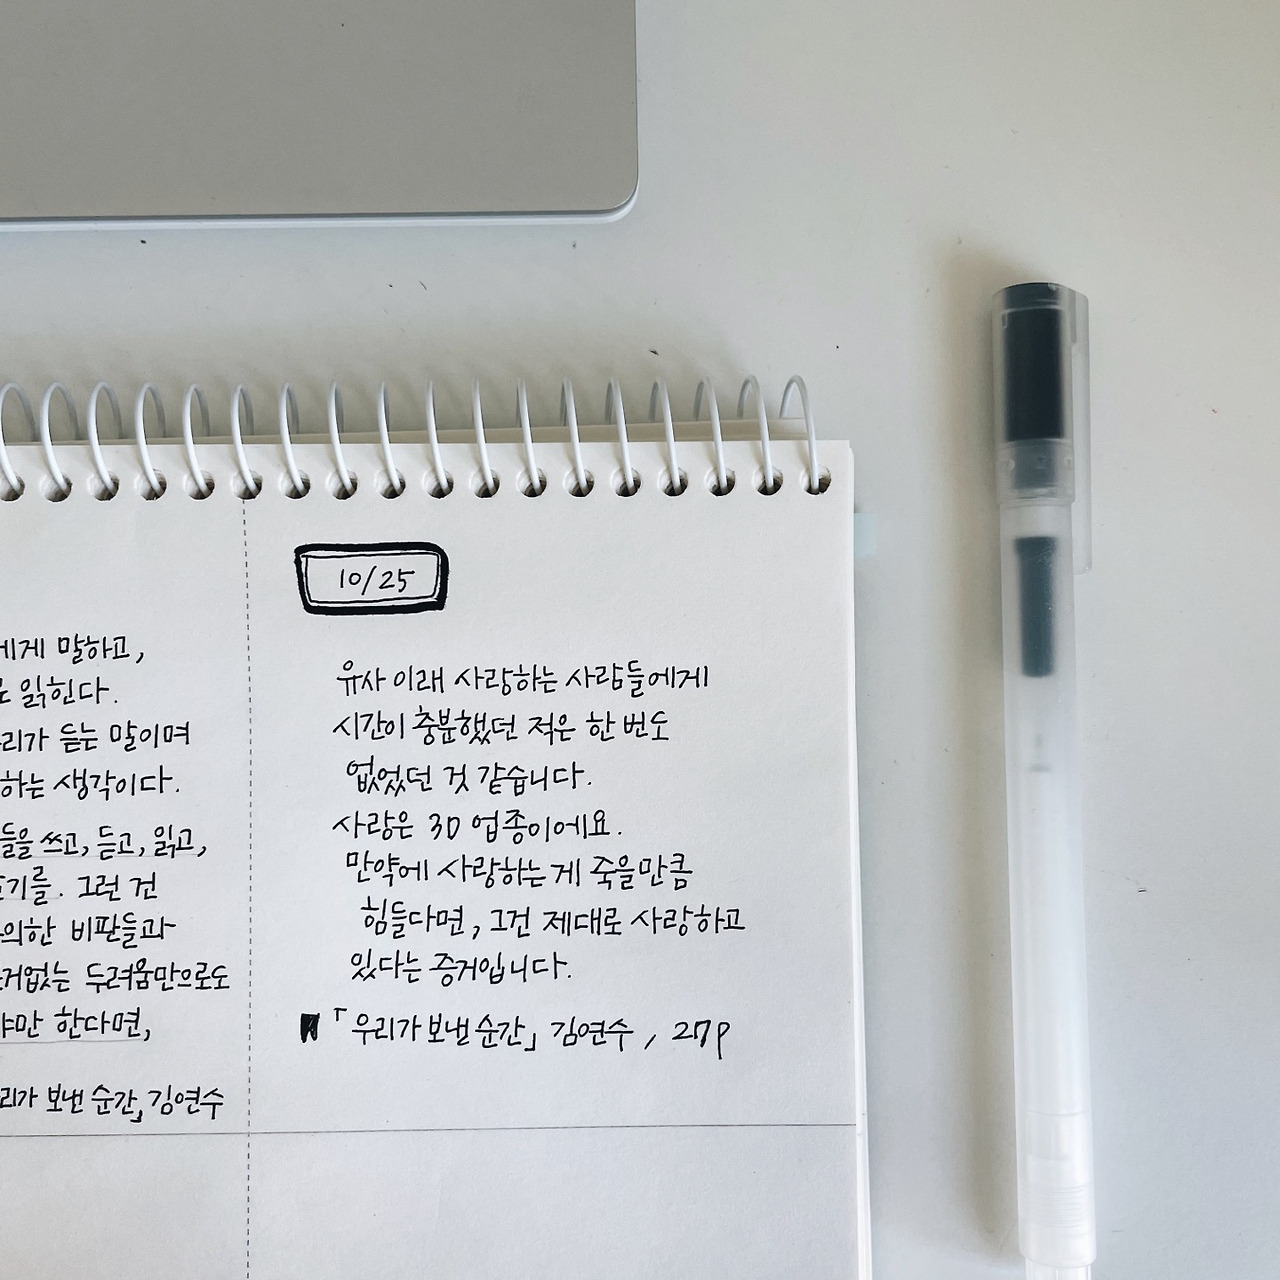 에게 말하고,
로 읽힌다.
리가 듣는 말이며
하는 생각이다.
들을 쓰고, 듣고, 읽고,
기를. 그런 건
의한 비판들과
거없는 두려움만으로도
야만 한다면,
리가 보낸 순간」 김연수
10/25
유사 이래 사랑하는 사람들에게
시간이 충분했던 적은 한 번도
없었던 것 같습니다.
사랑은 3D 업종이에요.
만약에 사랑하는 게 죽을만큼
힘들다면, 그건 제대로 사랑하고
있다는 증거입니다.
「우리가 보낸 순간」 김연수, 27p